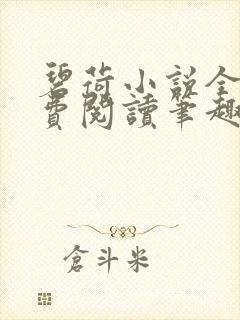 碧荷小說全
費閱讀筆趣
倉斗米